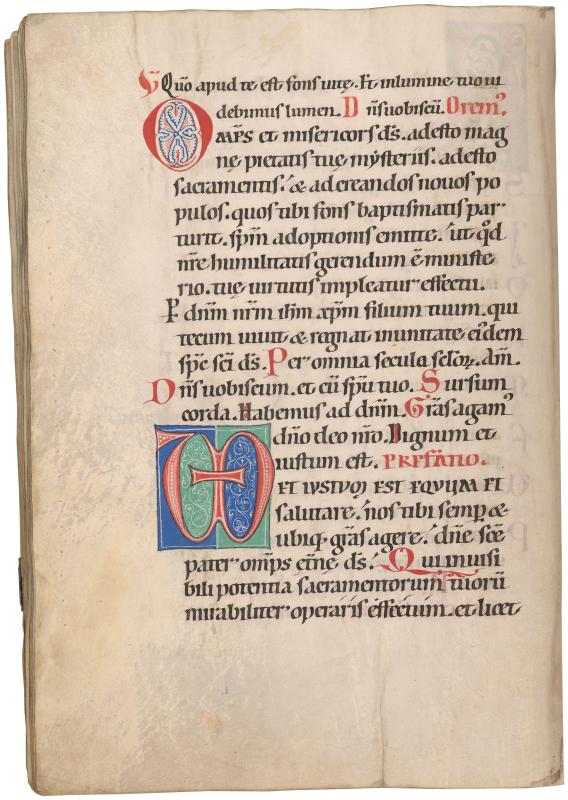 V̄ Quō apud te est fons uitę. Et inlumine tuo ui
debimus lumen. D n̄s uobiscū. Orem᷒.
O m̄ps et misericors d̄s. adesto mag
nę pietatis tuę mẏsteriis. adesto
sacramentis. & ad creandos nouos po
pulos. quos tibi fons baptismatis par
turit. sp̄m adoptionis emitte. ut qđ
nr̄e humilitatis gerendum ē ministe
rio. tuę uirtutis impleatur effectu.
P dn̄m nr̄m ih̄m xp̄m filium tuum. qui
tecum uiuit & regnat in unitate ei᷒dem
sp̄c sc̄i d̄s. Per omnia secula sclōꝝ. Am̄.
D n̄s uobiscum. et cū sp̄u tuo. Sursum
corda. Habemus ad dn̄m. Gr̄as agam᷒
dn̄o deo nr̄o. Dignum et
iustum est. PREFATIO.
VD ET IVSTVM EST EQVVM ET
salutare. nos tibi semp̄ &
ubiq; gr̄as agere. dn̄e sc̄e
pater om̄ps et̄ne d̄s. Qui inuisi
bili potentia sacramentorum tuorū
mirabiliter operaris effectum. et licet